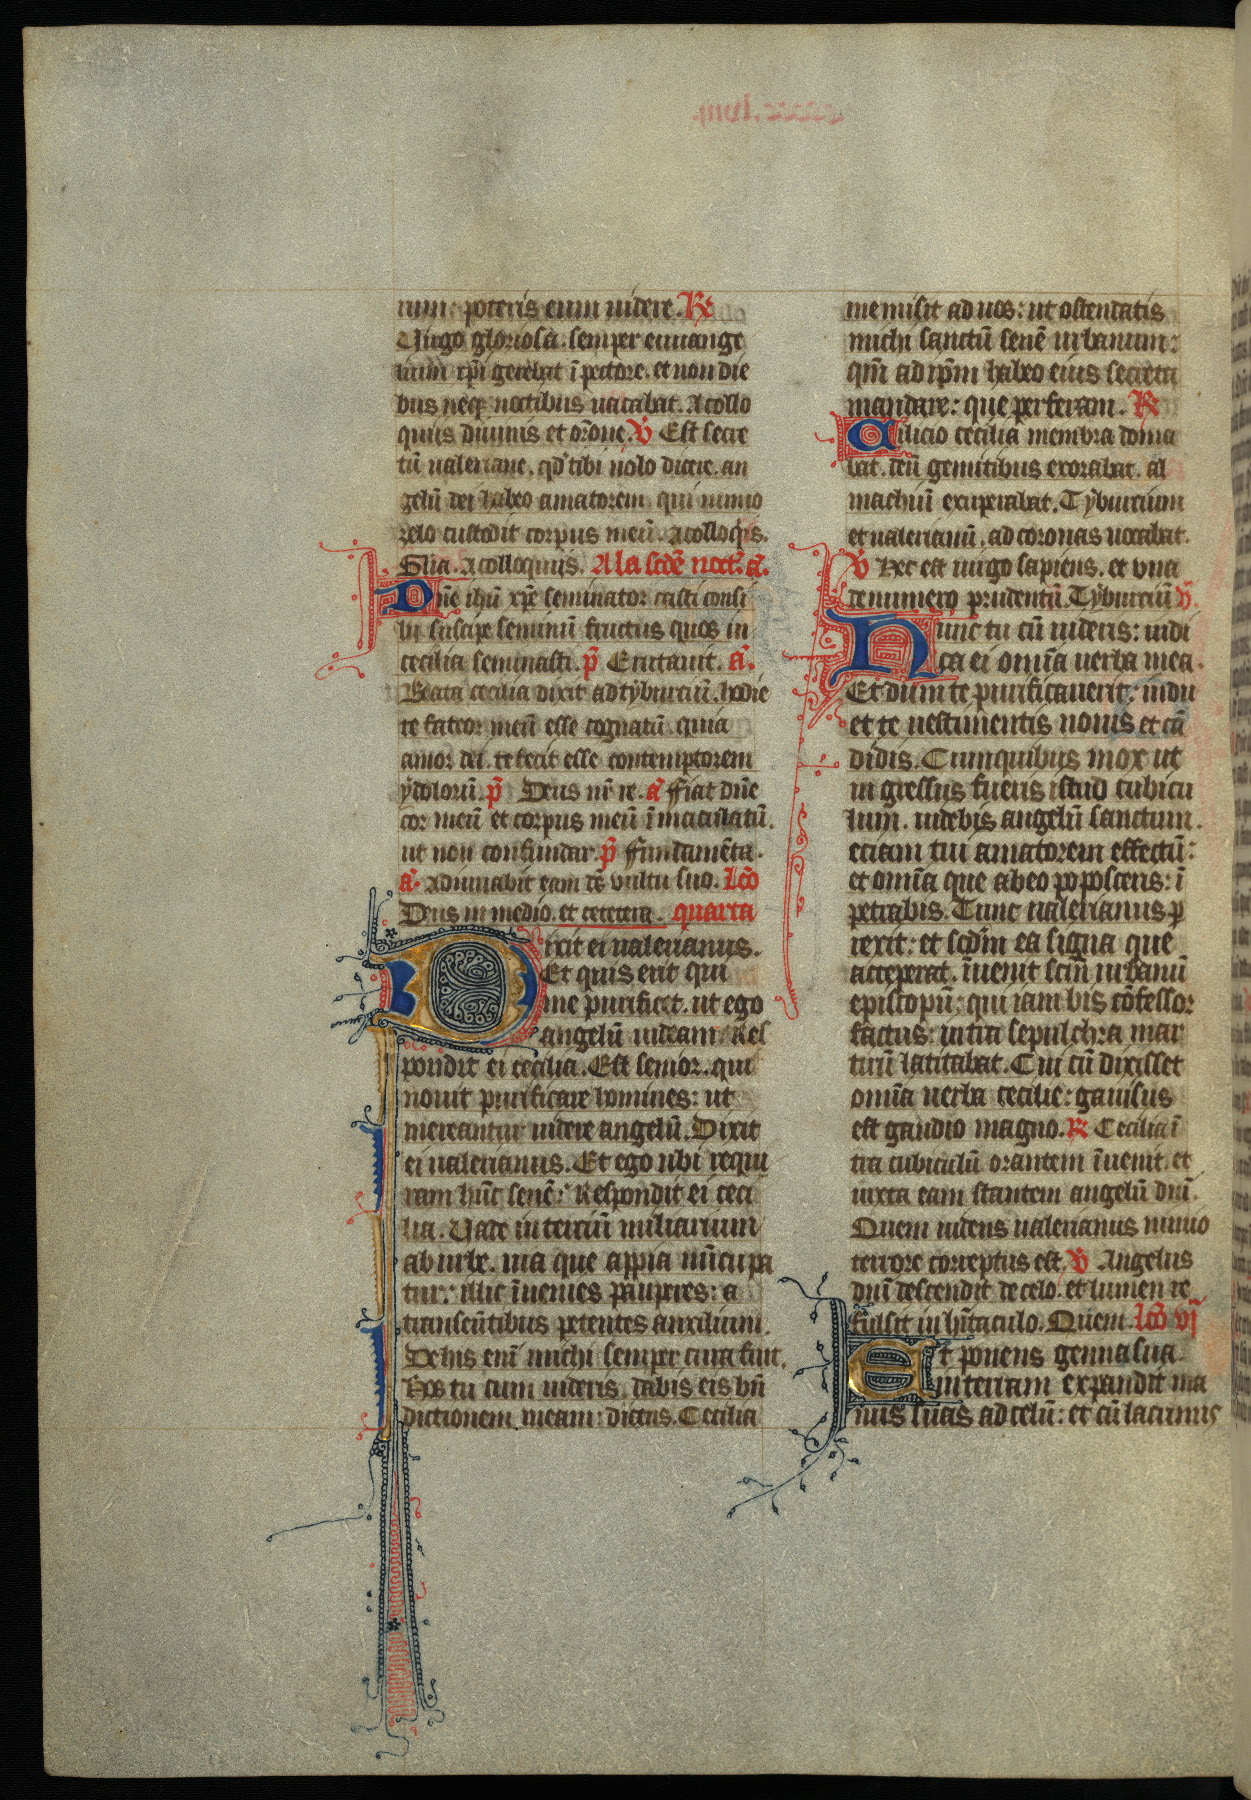 num poteris eum uidere. R̄
Uirgo gloriosa semper euuange
lium xp̄i gerebat ī pectore. et non die
bus neq noctibus uacabat. A collo
quiis diuinis et or̄one. V̄ Est secre
tū ualeriane. qd̓ tibi uolo dicere. an
gelū dei habeo amatorem qui nimio
zelo custodit corpus meū. A colloq̄is.
Glīa. A colloquiis. A la scd̄e noct̄. a.
Dn̄e ih̄u xp̄e seminator casti consi
lii suscipe seminū fructus quos in
cecilia seminasti. p̄ Eructauit. a.
Beata cecilia dixit ad tyburciū. hodie
te fateor meū esse cognatū. quia
amor dei. te fecit esse contemptorem
ydolorū. p̄ Deus nr̄ re. a Fiat dn̄e
cor meū et corpus meū īmaculatū.
ut non confundar. p̄ Fundamēta.
a. Adiuuabit eam d̄s uultu suo. Lc̄o
Deus in medio. et cetetera. quarta
Dixit ei ualerianus.
Et quis erit qui
me purificet. ut ego
angelū uideam. Res
pondit ei cecilia. Est senior. qui
nouit purificare homines: ut
mereantur uidere angelū. Dixit
ei ualerianus. Et ego ubi requi
ram hūc senē: Respondit ei ceci
lia. Uade in terciū miliarium
ab urbe. uia que appia nūcupa
tur: illic īuenies pauperes: a
transeūtibus petentes auxilium.
De his enī michi semper cura fuit.
Hos tu cum uideris. dabis eis bn̄
dictionem meam: dicens. Cecilia
me misit ad uos: ut ostendatis
michi sanctū senē urbanum:
qm̄ ad ip̄m habeo eius secreta
mandare: que perferam. R̄
Cilicio cecilia membra doma
bat. deū gemitibus exorabat. al
machiū exuperabat. Tyburcium
et ualerianū. ad coronas uocabat.
V̄ Hec est uirgo sapiens. et una
de numero prudentū. Tyburciū v̄.
Hunc tu cū uideris: indi
ca ei omīa uerba mea.
Et dum te purificauerit: indu
et te uestimentis nouis et cā
didis. Cum quibus mox ut
ingressus fueris istud cubicu
lum. uidebis angelū sanctum.
etiam tui amatorem effectū:
et omīa que ab eo poposceris: ī
petrabis. Tunc ualerianus p
rexit: et scdm̄ ea signa que
acceperat. īuenit scm̄ urbanū
episcopū: qui iam bis cōfessor
factus: intra sepulchra mar
tirū latitabat. Cui cū dixisset
omīa uerba cecilie: gauisus
est gaudio magno. R̄ Cecilia ī
tra cubiculū orantem īuenit. et
iuxta eam stantem angelū dnī.
Quem uidens ualerianus nimio
terrore correptus est. V̄ Angelus
dnī descendit de celo. et lumen re
fulsit in hītaculo. Quem. lc̄o vj̄
Et ponens genua sua
in terram expandit ma
nus suas ad celū: et cū lacrimis